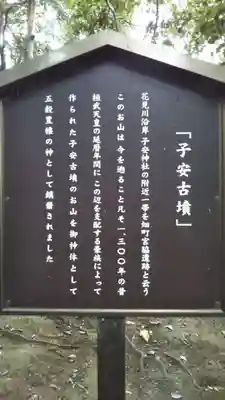 「子安古墳」
花見川沿岸 子安神社の附近一帯を畑町宮脇遺跡と云う
このお山は 今を遡ること凡そ一、三〇〇年の昔
桓武天皇の延暦年間に この辺を支配する豪族によって
作られた子安古墳のお山を御神体として
五穀豊穣の神として頌讃されました